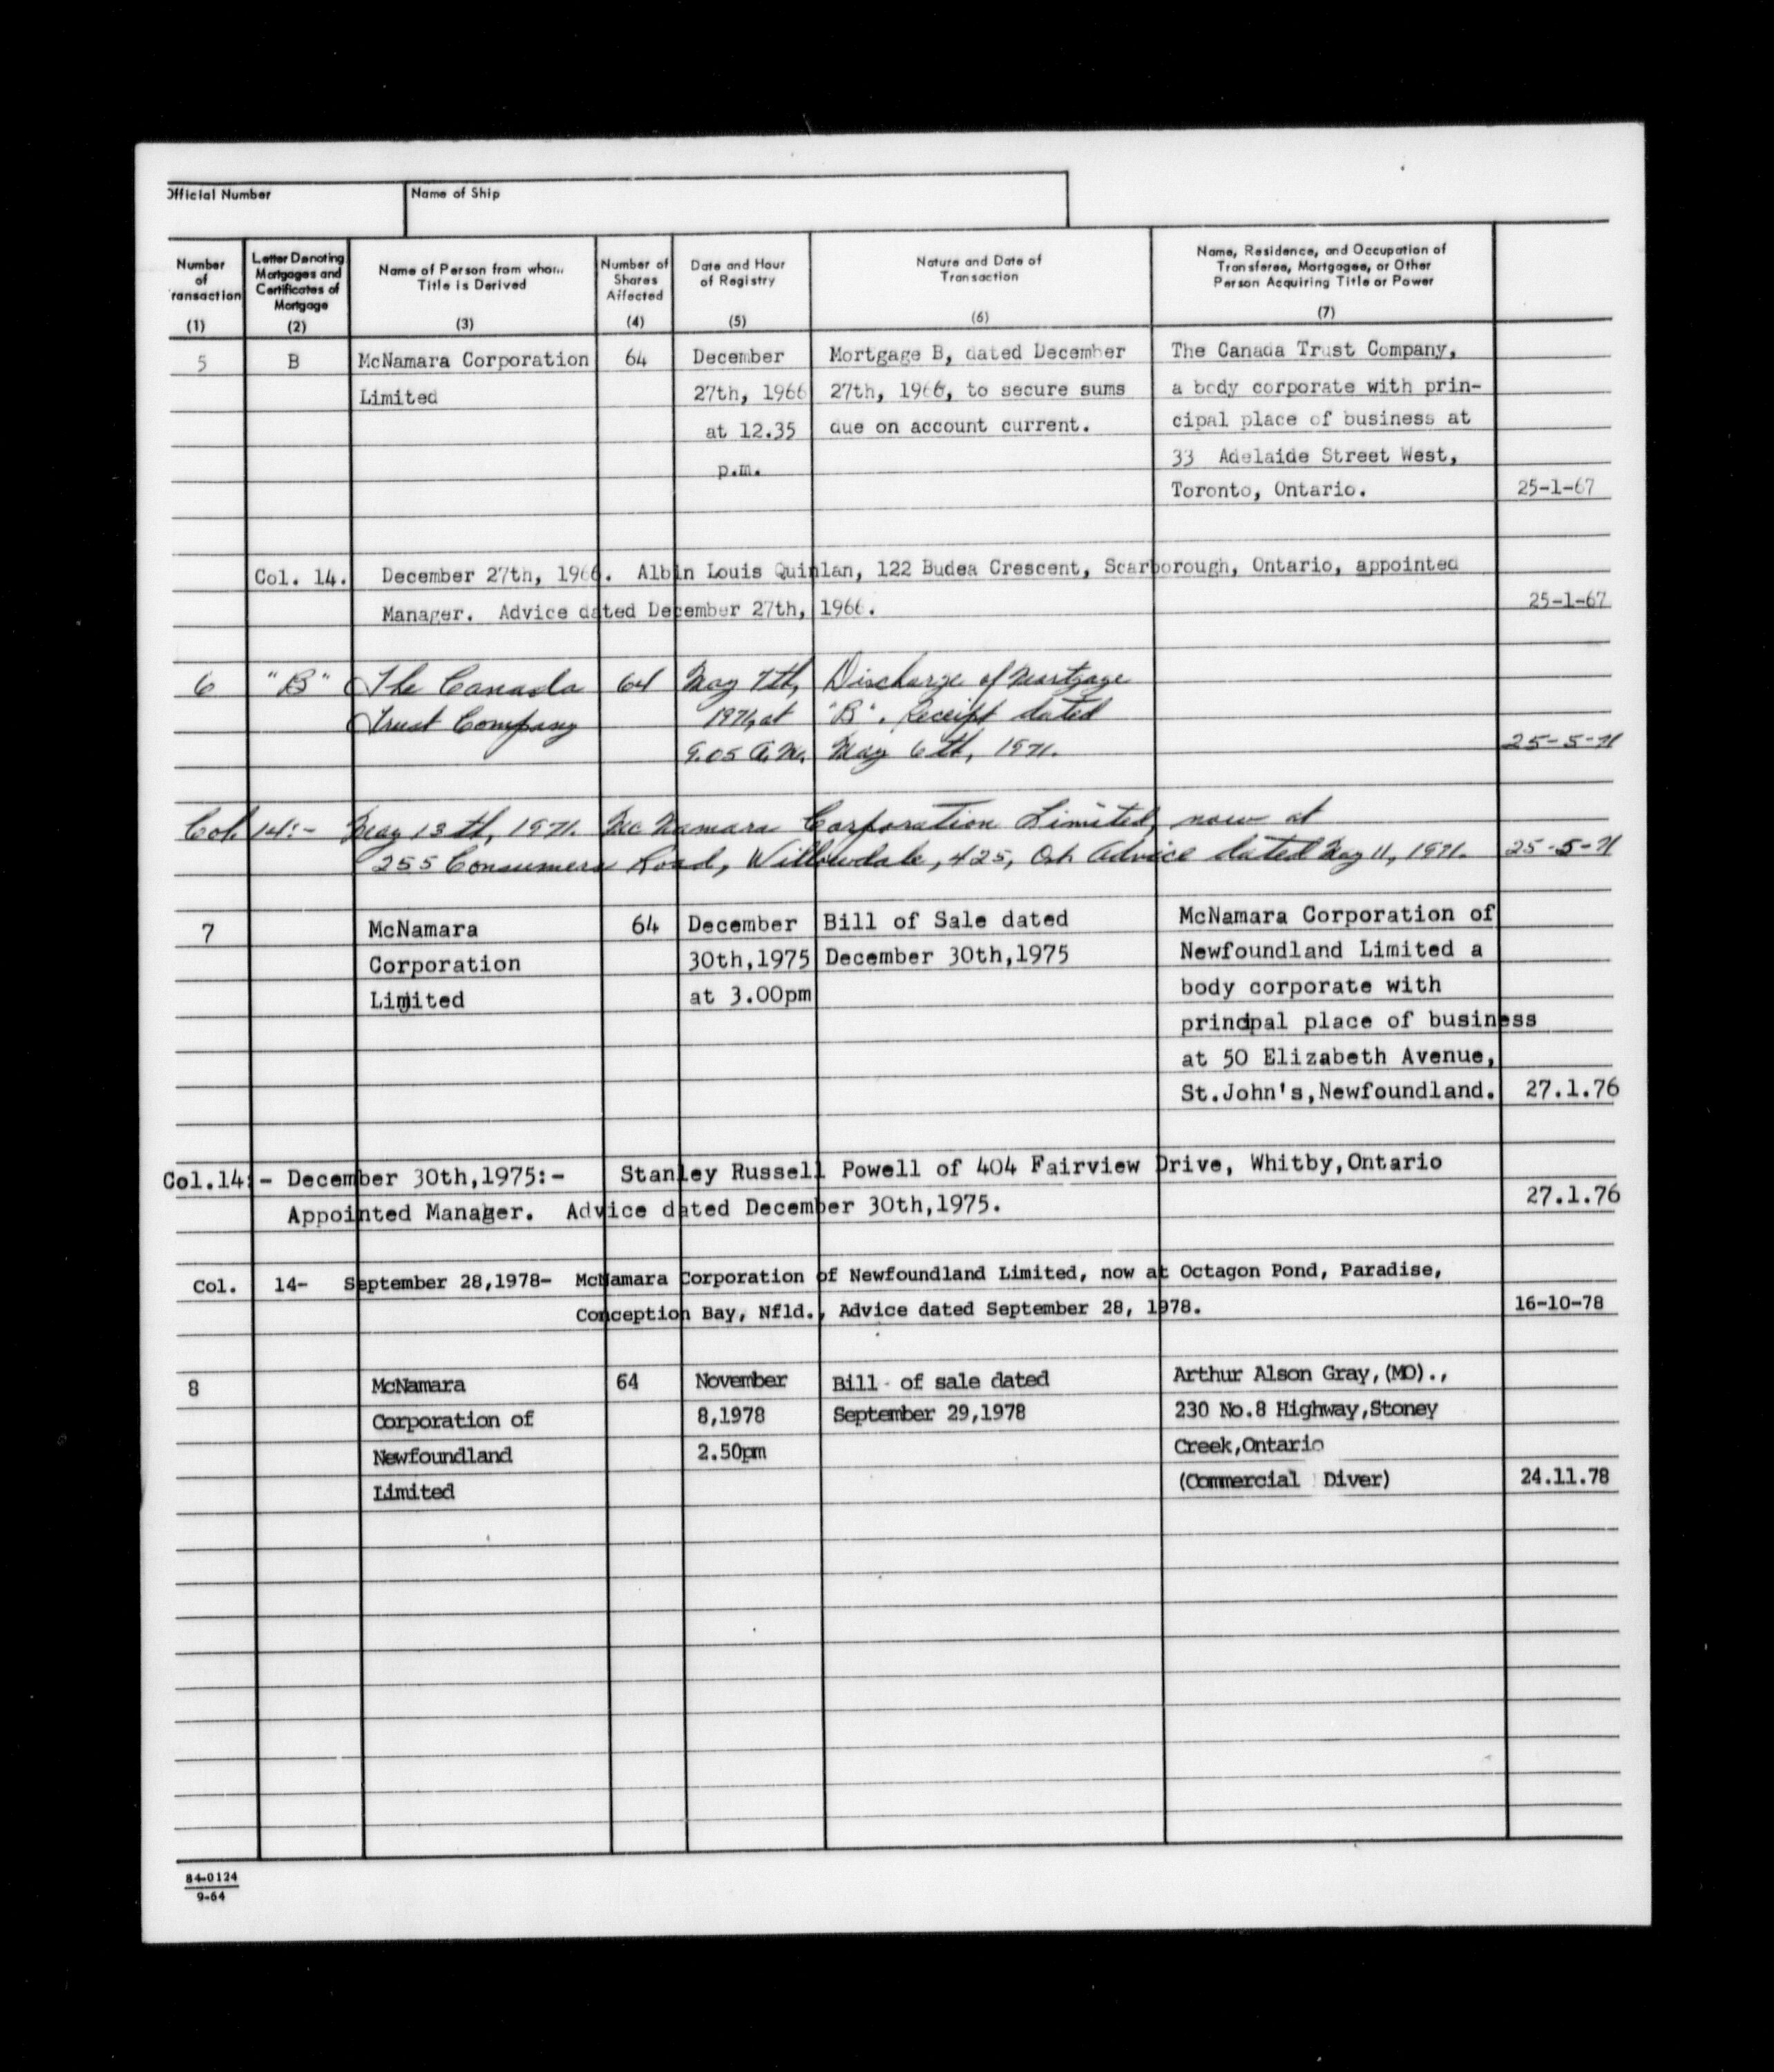 Official Number
Name of Ship
Number of Transaction (1)
Letter Denoting Mortgages and Certificates of Mortgage (2)
Name of Person from whom Title is Derived (3)
Number of Shares Affected (4)
Date and Hour of Registry (5)
Nature and Date of Transaction (6)
Name, Residence, and Occupation of Transferee, Mortgagee, or Other Person Acquiring Title or Power (7)
5 B McNamara Corporation 64 December Mortgage B, dated December The Canada Trust Company,
Limited 27th, 1966 27th, 1966, to secure sums a body corporate with prin-
at 12.35 due on account current. cipal place of business at
p.m. 33 Adelaide Street West,
Toronto, Ontario. 25-1-67
Col. 14. December 27th, 1966. Albin Louis Quinlan, 122 Budea Crescent, Scarborough, Ontario, appointed
Manager. Advice dated December 27th, 1966. 25-1-67
6 "B" The Canada 64 May 7th, Discharge of Mortgage
Trust Company 1971, at "B". Receipt dated
9.05 A.M. May 6th, 1971. 25-5-71
Col. 14:- May 13th, 1971. McNamara Corporation Limited, now at
255 Consumers Road, Willowdale, 425, Ont. Advice dated May 11, 1971. 25-5-71
7 McNamara 64 December Bill of Sale dated McNamara Corporation of
Corporation 30th,1975 December 30th,1975 Newfoundland Limited a
Limited at 3.00pm body corporate with
principal place of business
at 50 Elizabeth Avenue,
St.John's,Newfoundland. 27.1.76
Col.14:- December 30th,1975:- Stanley Russell Powell of 404 Fairview Drive, Whitby,Ontario
Appointed Manager. Advice dated December 30th,1975. 27.1.76
Col. 14- September 28,1978- McNamara Corporation of Newfoundland Limited, now at Octagon Pond, Paradise,
Conception Bay, Nfld., Advice dated September 28, 1978. 16-10-78
8 McNamara 64 November Bill of sale dated Arthur Alson Gray,(MO).,
Corporation of 8,1978 September 29,1978 230 No.8 Highway,Stoney
Newfoundland 2.50pm Creek,Ontario
Limited (Commercial Diver) 24.11.78
84-0124
9-64